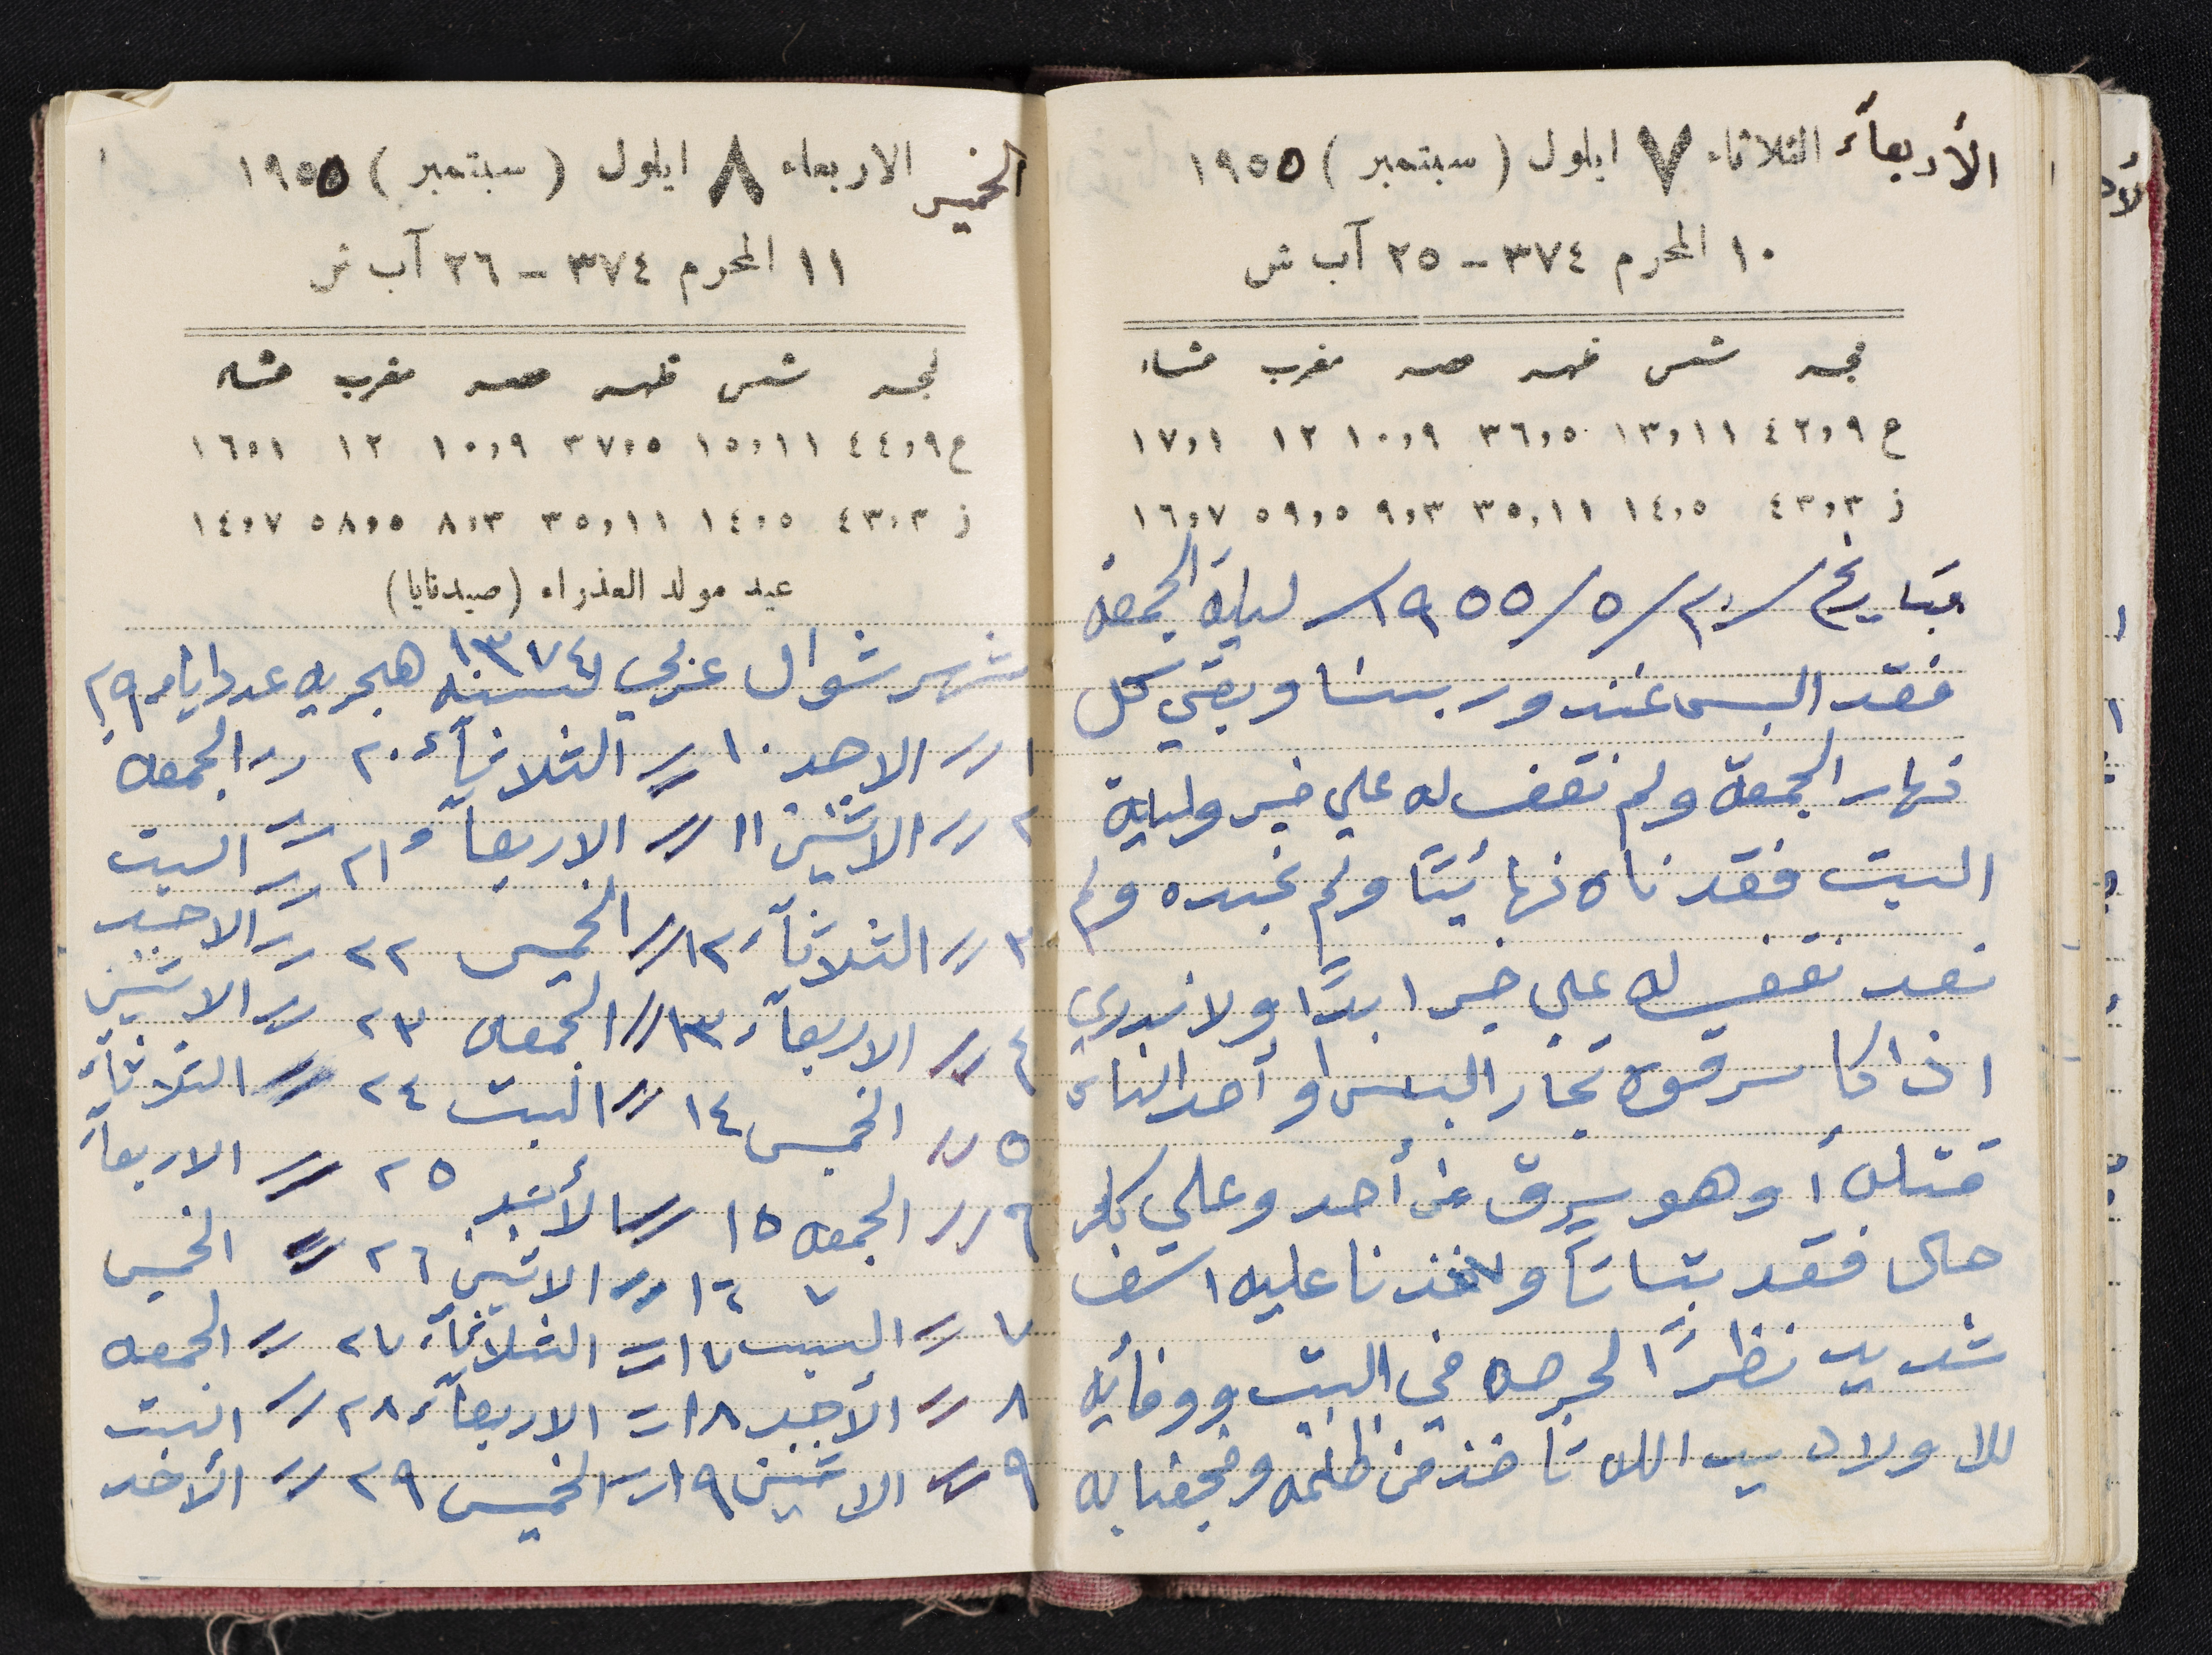 الأربعاء الثلاثاء ٧ ايلول (سبتمبر) ١٩٥٥
١٠ المحرم ٣٧٤ - ٢٥ آب ش
فجر شمس ظهر عصر مغرب عشاء
ع ٤٢،٩ ١٣،١١ ٣٦،٥ ١٠،٩ ١٢ ١٧،١
ز ٤٣،٣ ١٤،٥ ٣٥،١١ ٩،٣ ٥٩،٥ ١٦،٧
بتاريخ ٢٠/٥/١٩٥٥ ليلة الجمعة
فقد البس غندور بيتنا وبقي كل
نهار الجمعة ولم نقف له علي خبر وليلة
السبت فقدناه نهائيًا ولم نجده ولم
نعد نقف له علي خبر ابدًا ولا ندري
اذا كا سرقوه تجار البسس او أحد الناس
قتله أو هو سرق من أحد وعلي كل
حال فقد بتاتًا و عليه اسف
شديد نظرًا لحرصه في البيت ووفائه
للاولاد الله من ظلمه وفجعنا به
الخميس الاربعاء ٨ ايلول (سبتمبر) ١٩٥٥
١١ المحرم ٣٧٤ - ٢٦ آب ش
فجر شمس ظهر عصر مغرب عشاء
ع ٤٤،٩ ١٥،١١ ٣٧،٥ ١٠،٩ ١٢ ١٦،١
ز ٤٣،٣ ١٤،٥ ٣٥،١١ ٨،٣ ٥٨،٥ ١٤،٧
عيد مولد العذراء (صيدنايا)
شهر شوال عربي لسنه ١٣٧٤ هجريه عدد ايامه ٢٩
١ // الاحد ١٠ // الثلاثاء ٢٠ // الجمعه
٢ // الاثنين ١١ // الاربعاء ٢١ // السبت
٣ // الثلاثاء ١٢ // الخميس ٢٢ // الاحد
٤ // الاربعاء ١٣ // الجمعه ٢٣ // الاثنين
٥ // الخميس ١٤ // السبت ٢٤ // الثلاثاء
٦ // الجمعه ١٥ // الأحد ٢٥ // الاربعاء
٧ // السبت ١٦ // الاثنين ٢٦ // الخميس
٨ // الأحد ١٧ // الثلاثاء ٢٧ // الجمعه
٩ // الاثنين ١٨ // الاربعاء ٢٨ // السبت
١٩ // الخميس ٢٩ // الأحد